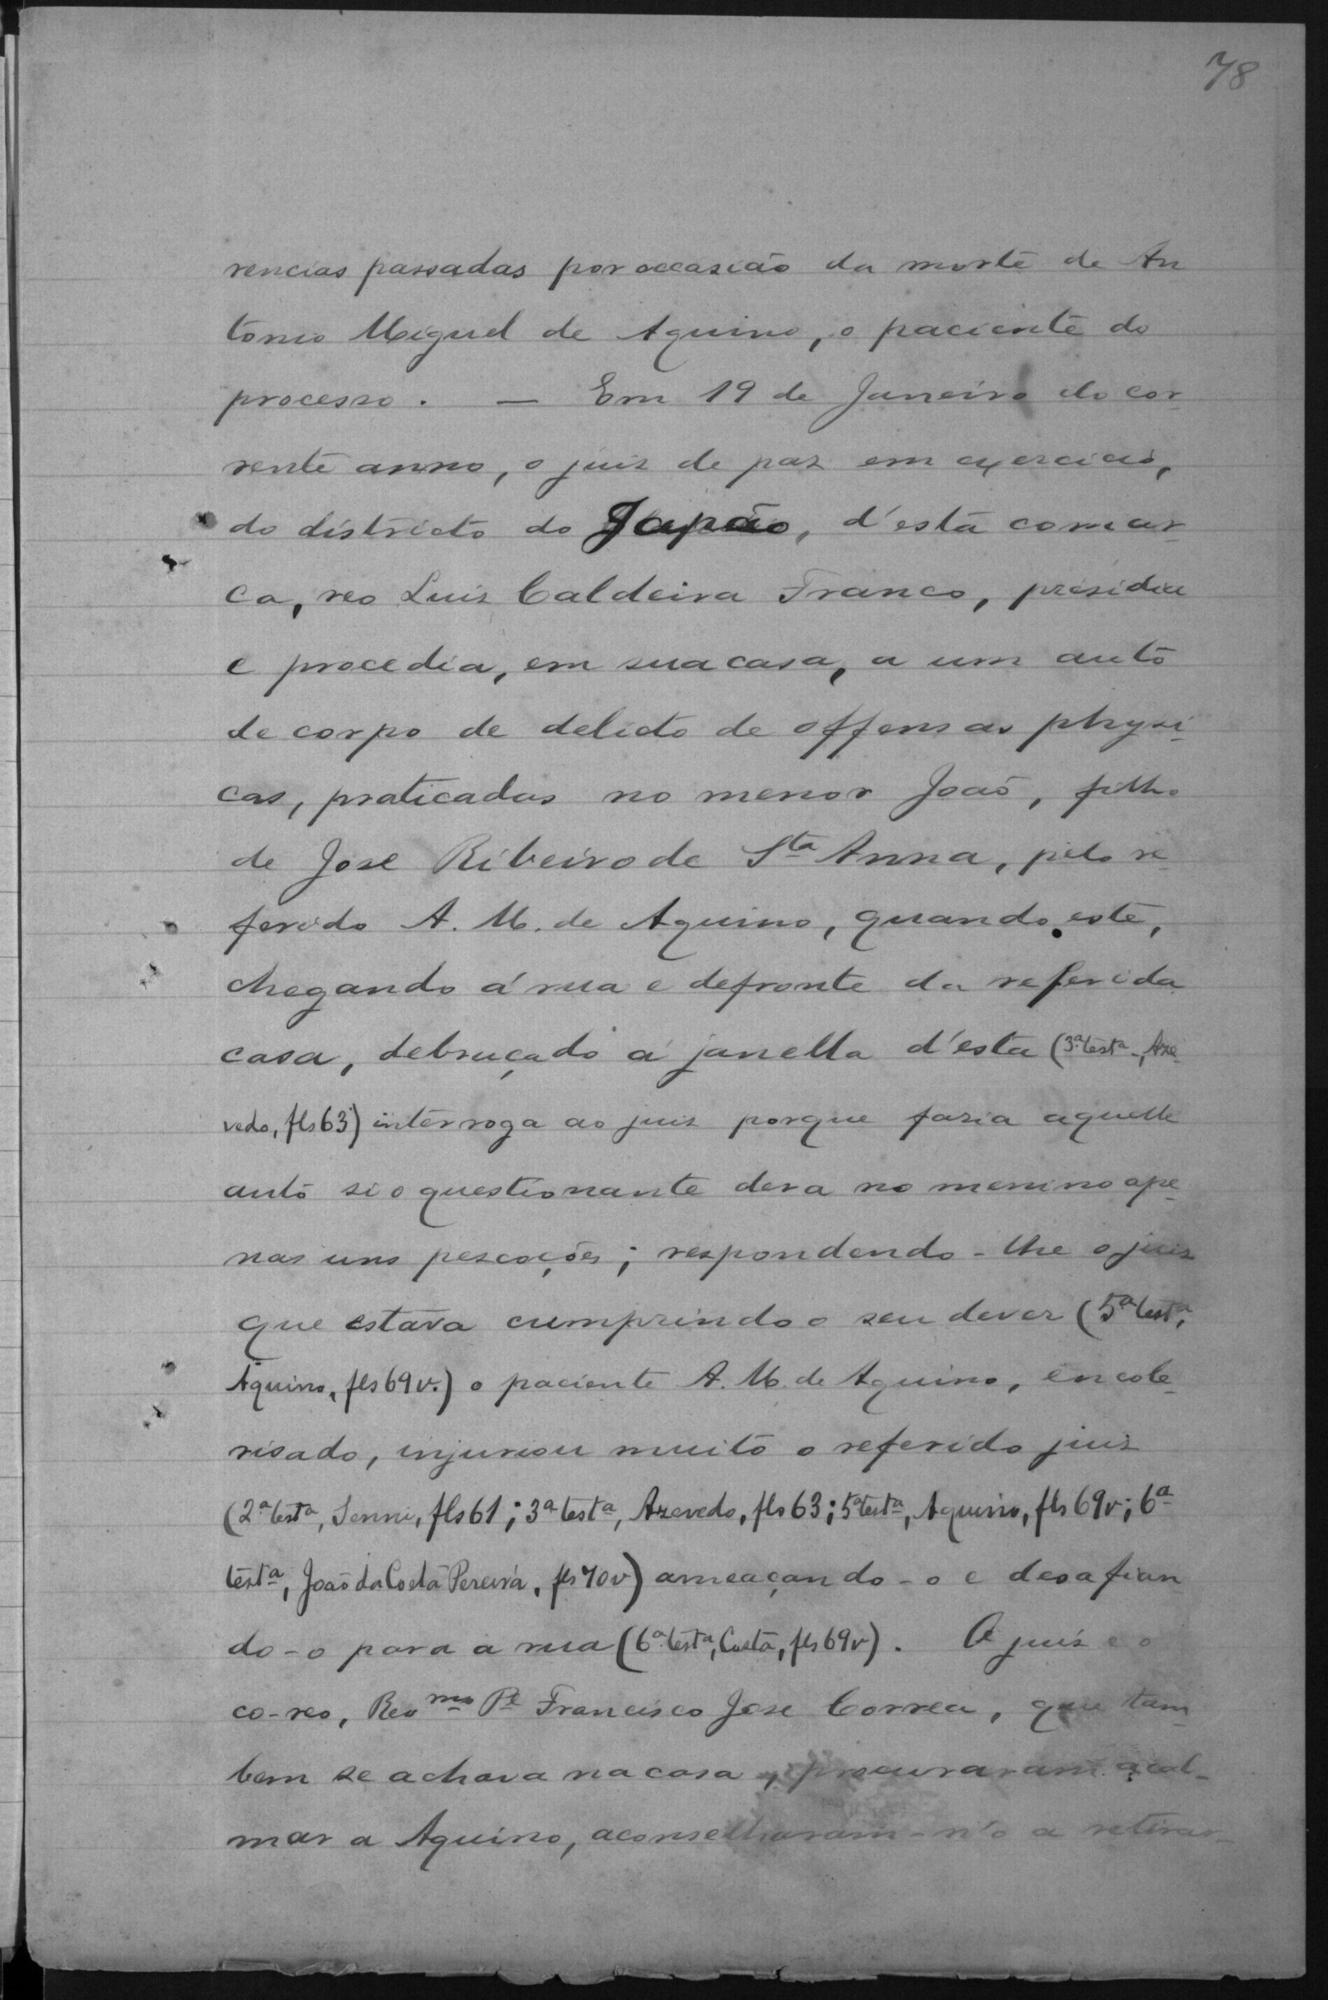 78
rencias passadas por occasião da morte de An
tonio Miguel de Aquino, o paciente do
processo. — Em 19 de Janeiro do cor-
rente anno, o juiz de paz em exercicio,
do districto do Japão, d'esta comar-
ca, reo Luiz Caldeira Franco, presidia
e procedia, em sua casa, a um auto
de corpo de delicto de offensas physi-
cas, praticadas no menor João, filho
de José Ribeiro de Sta Anna, pelo re-
ferido A. M. de Aquino, quando este,
chegando á rua e defronte da referida
casa, debruçado á janella d'esta (3ª testª, Aze-
vedo, fls 63) interroga ao juiz porque fazia aquelle
auto si o questionante dera no menino ape-
nas uns pescoções; respondendo-lhe o juiz
que estava cumprindo o seu dever (5ª testª,
Aquino, fls 69v.) o paciente A. M. de Aquino, encole-
risado, injuriou muito o referido juiz
(2ª testª, fls 61; 3ª testª, Azevedo, fls 63; 5ª testª, Aquino, fls 69v; 6ª
testª, João da Costa Pereira, fls 70v) ameaçando-o e desafian
do-o para a rua (6ª testª, Costa, fls 69v). O juiz e o
co-reo, Revmo Pe Francisco José Correa, que tam-
bem se achava na casa, procuraram acal-
mar a Aquino, aconselharam-n'o a retirar